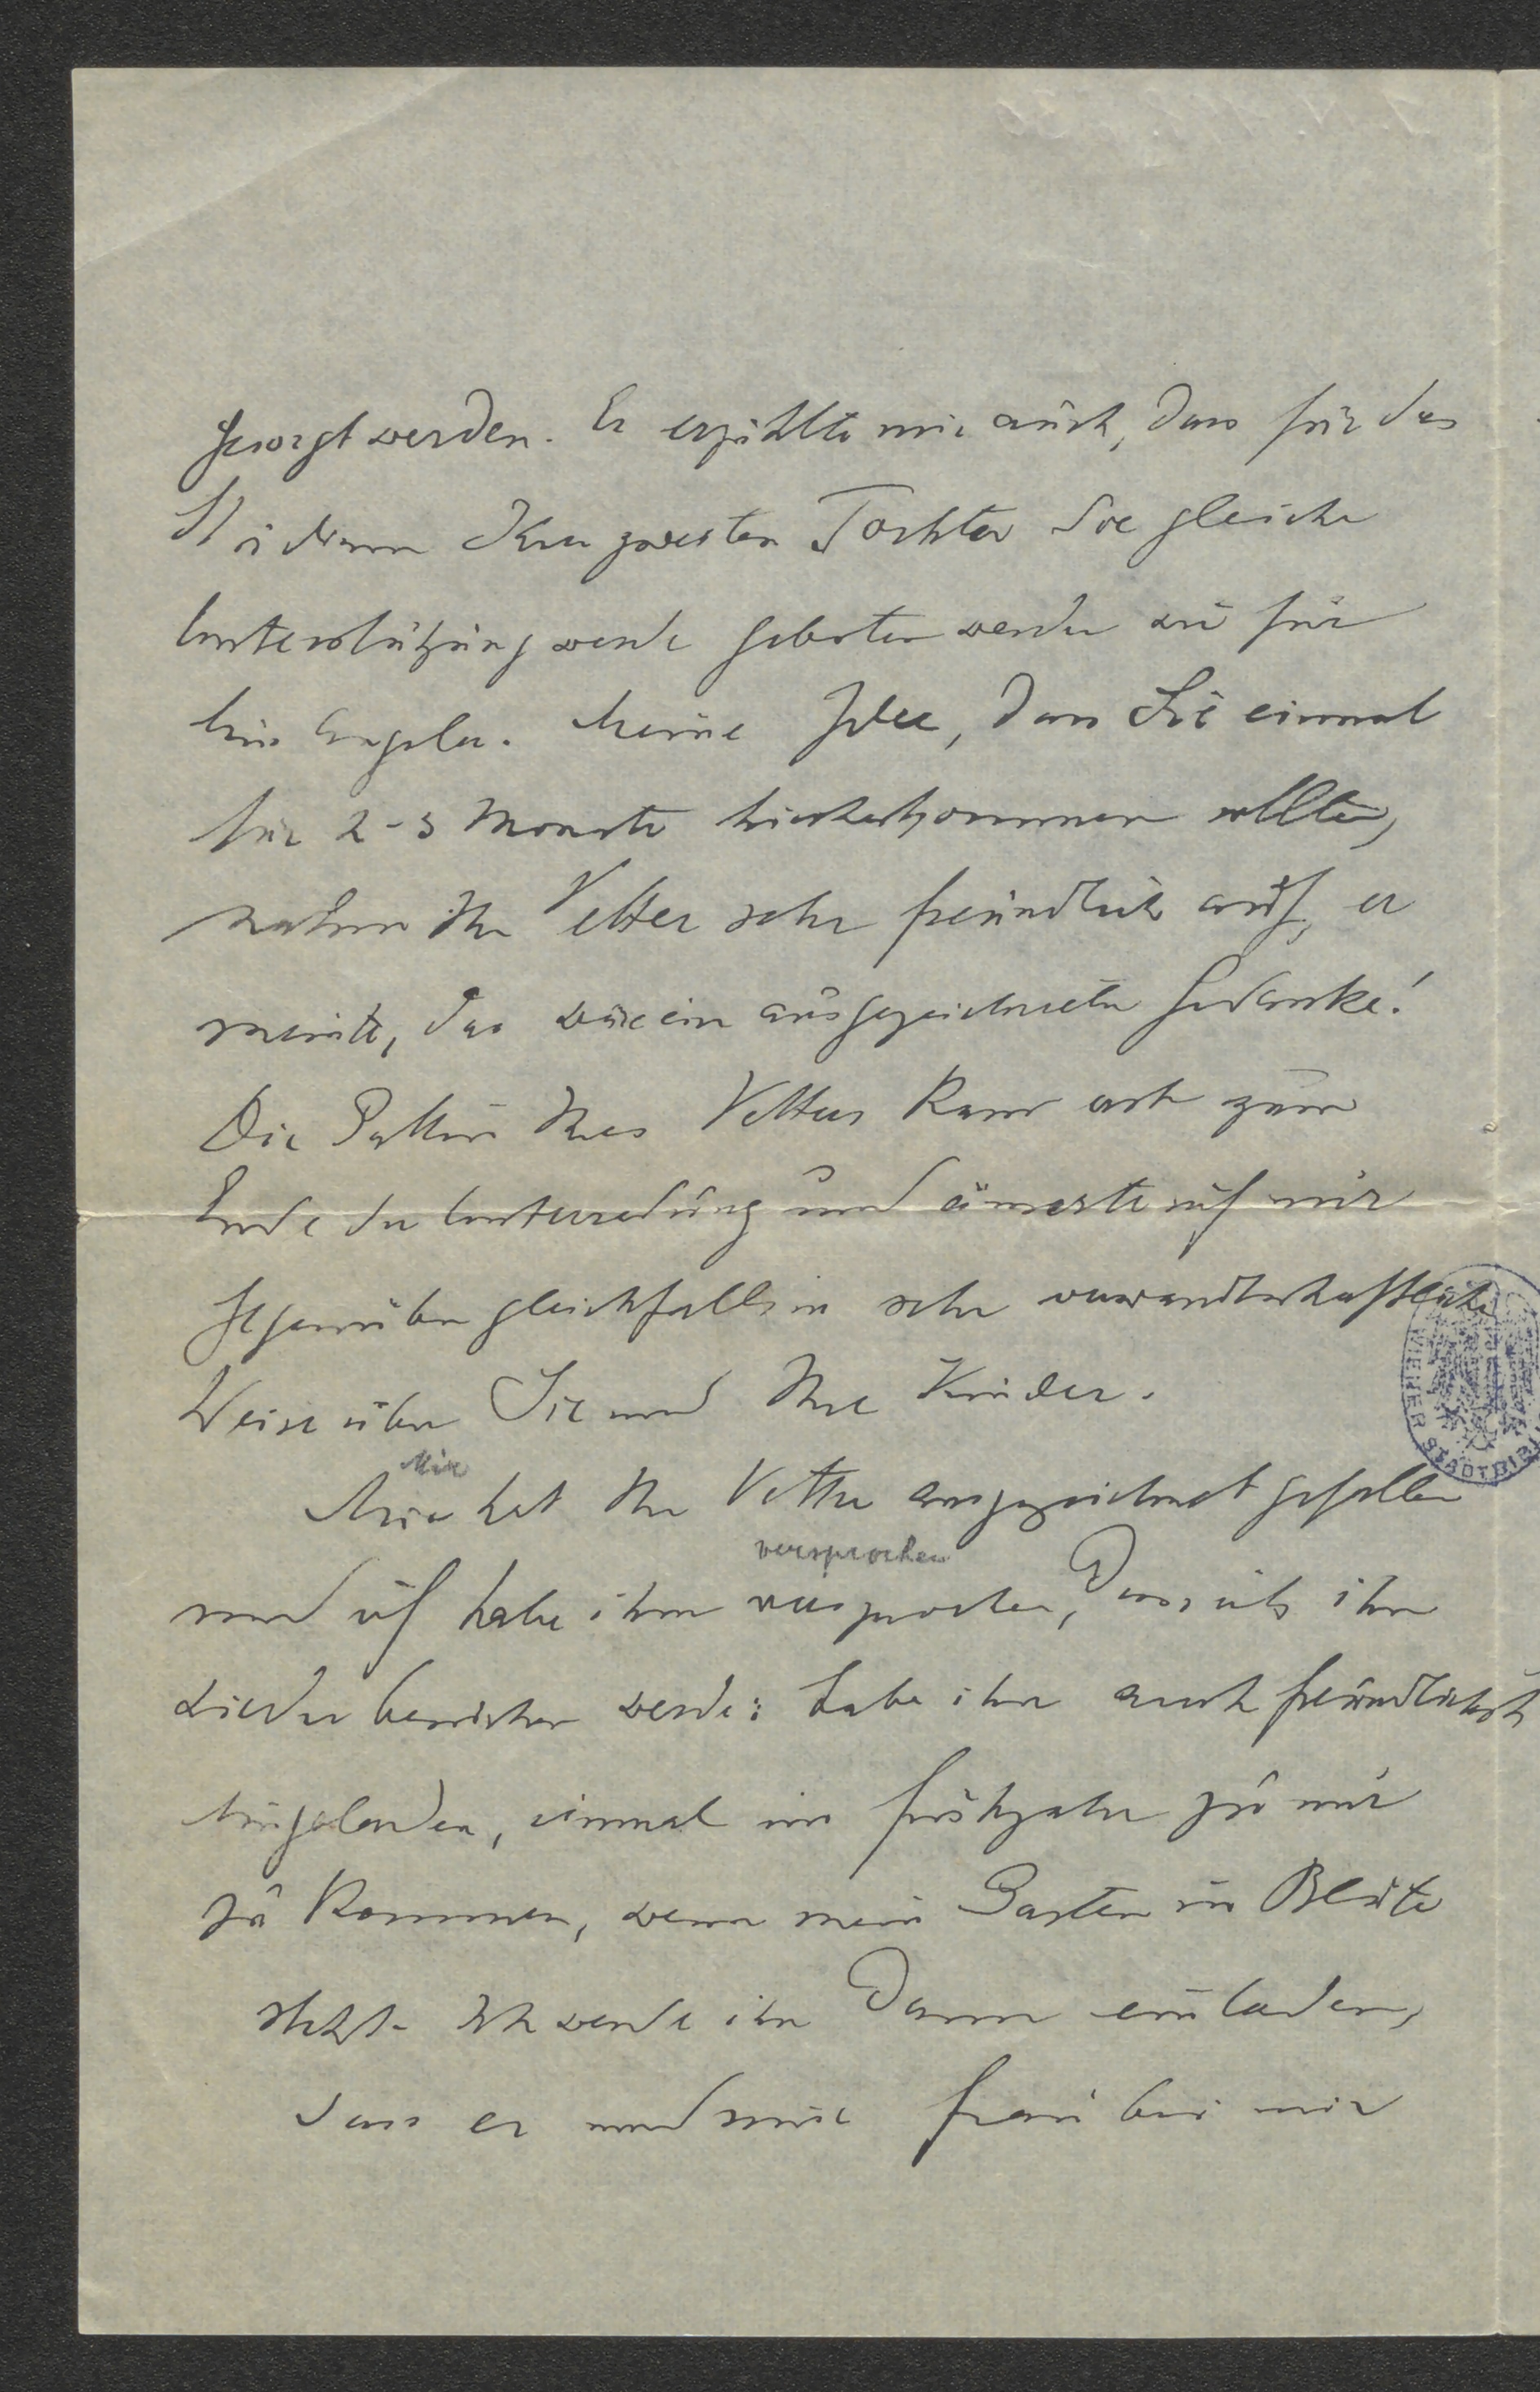 gesorgt werden. Er erzählte mir auch, dass für das
Studium Ihrer zweiten Tochter die gleiche
Unterstützung werde geboten werden wie für
Meine Idee, dass Sie einmal
für 2-3 Monate hierherkommen sollten,
nahm Ihr Vetter sehr freundlich auf, er
meinte, das wäre ein ausgezeichneter Gedanke!
Die Gattin Ihres Vetters kam erst zum
Ende der Unterredung und äusserte sich mir
gegenüber gleichfalls in sehr verwandtschaftlicher
Weise über Sie und Ihre Kinder.
Mir
Mir hat Ihr Vetter ausgezeichnet gefallen
versprochen
und ich habe ihm versprochen, dass ich ihn
wieder besuchen werde; habe ihn auch freundlichst
eingeladen, einmal im Frühjahr zu mir
zu kommen, wenn mein Garten in Blüte
steht. Ich werde ihn dann einladen,
dass er und seine Frau bei mir
WIENER STADTBIBL